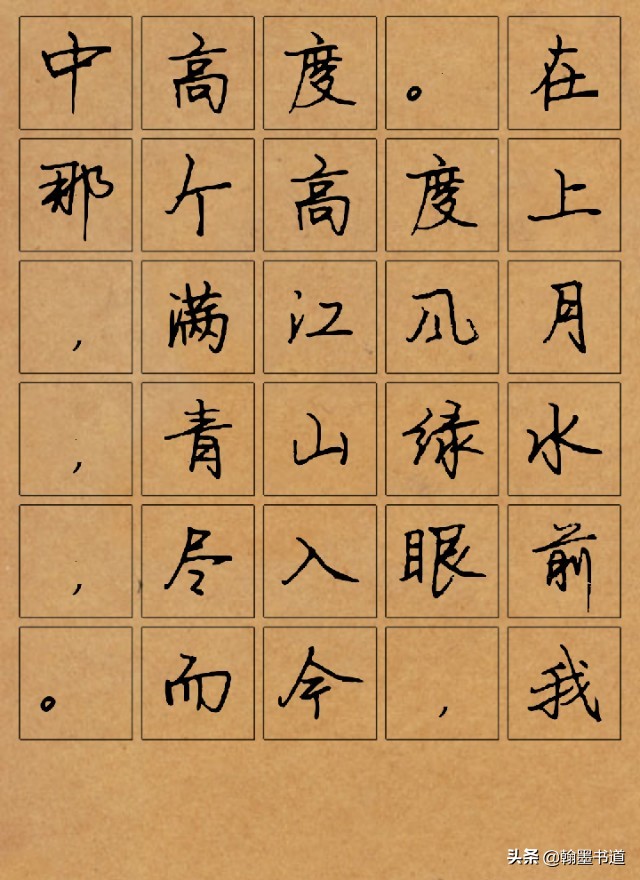 中高度。在
那个高度上
，满江风月
，青山绿水
，尽入眼前
。而今，我
头条 @翰墨书道